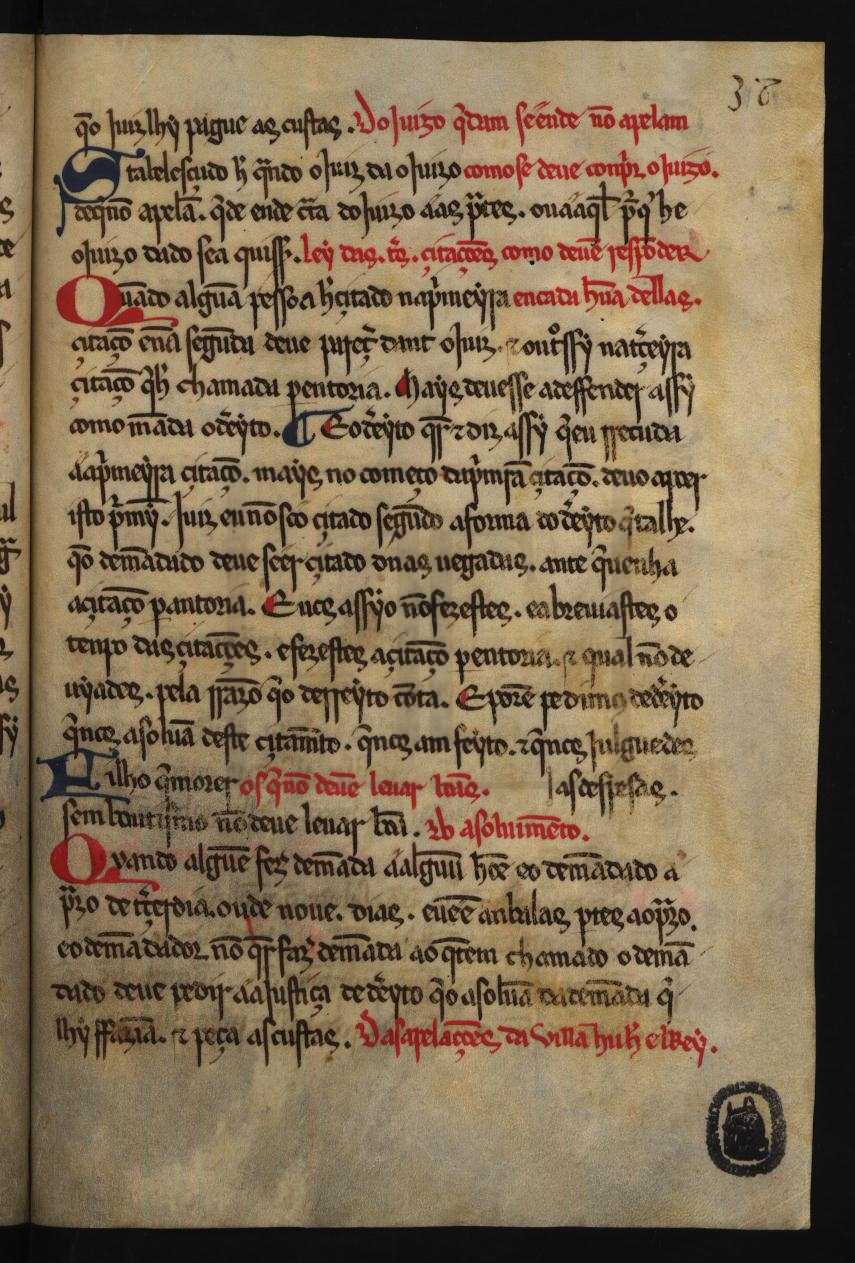 38
q̄o Juiz lhy pague as custas. Do Juizo q̄ dam se ende nō apelam
Stabelesçudo h̄ q̄ndo o Juiz da o Juizo como se deue conp̃r o Juizo.
de q̄ nō apelā. q̃ de ende c̃ta do Juizo áás p̃tes. ou áaq̄l p̃ q̄ he
o Juizo dado sea quiss̃. ley das. t̃s. çitaçōes como deuē respōder
Quādo alguā pessoa h̄ çitado na p̃meyra en cada hūa dellas.
çitaçō e nā segūda deue pareç̃ dant̃ o Juiz. ⁊ out̃ssy na t̃çeyra
çitaçō q̄ h̄ chamada perentoria. Mays deuesse a deffender assy
como māda o d̃eyto. ¶ E o d̃eyto q̄r ⁊ diz assy q̄ eu rrecuda
áa p̃meyra çitaçō. mays no começo da p̃mr̃a çitaçō. deuo a poer
isto p̃my̅. Juiz eu nō sōo çitado segūdo a forma do d̃eyto q̄ tal he.
q̄ o demādado deue seer çitado duas uegadas. ante q̄ uenha
a çitaçō perantoria. E uos assyo nō fezestes. e abreuiastes o
tenpo das çitaçōes. e fezestes a çitaçō perentoria. ⁊ qual nō de
uyades. pela rrazō q̄ o derreyto cōta. E porē pedimos de d̃eyto
q̄ uos asoluā deste çitam̃to. q̄ uos am feyto. ⁊ q̄ uos Julguedes
Filho q̄ morer os q̄ nō deuē leuar bēes. as despesas.
sem nō deue leuar bēe. Do asoluimēto.
Quando alguē fez demāda a alguū hōe e o demādado a
p̃zo de t̃çer dia. ou de noue. dias. e uēē anbalas p̃tes ao p̃zo.
e o demādador nō q̄r faz̃ demāda ao q̄ tem chamado o demā
dado deue pedir áa Justiça de d̃eyto q̄ o asoluā da demāda q̄
lhy ffaziā. ⁊ peça as custas. Das apelaçōes da villa hu h̄ el Rey.